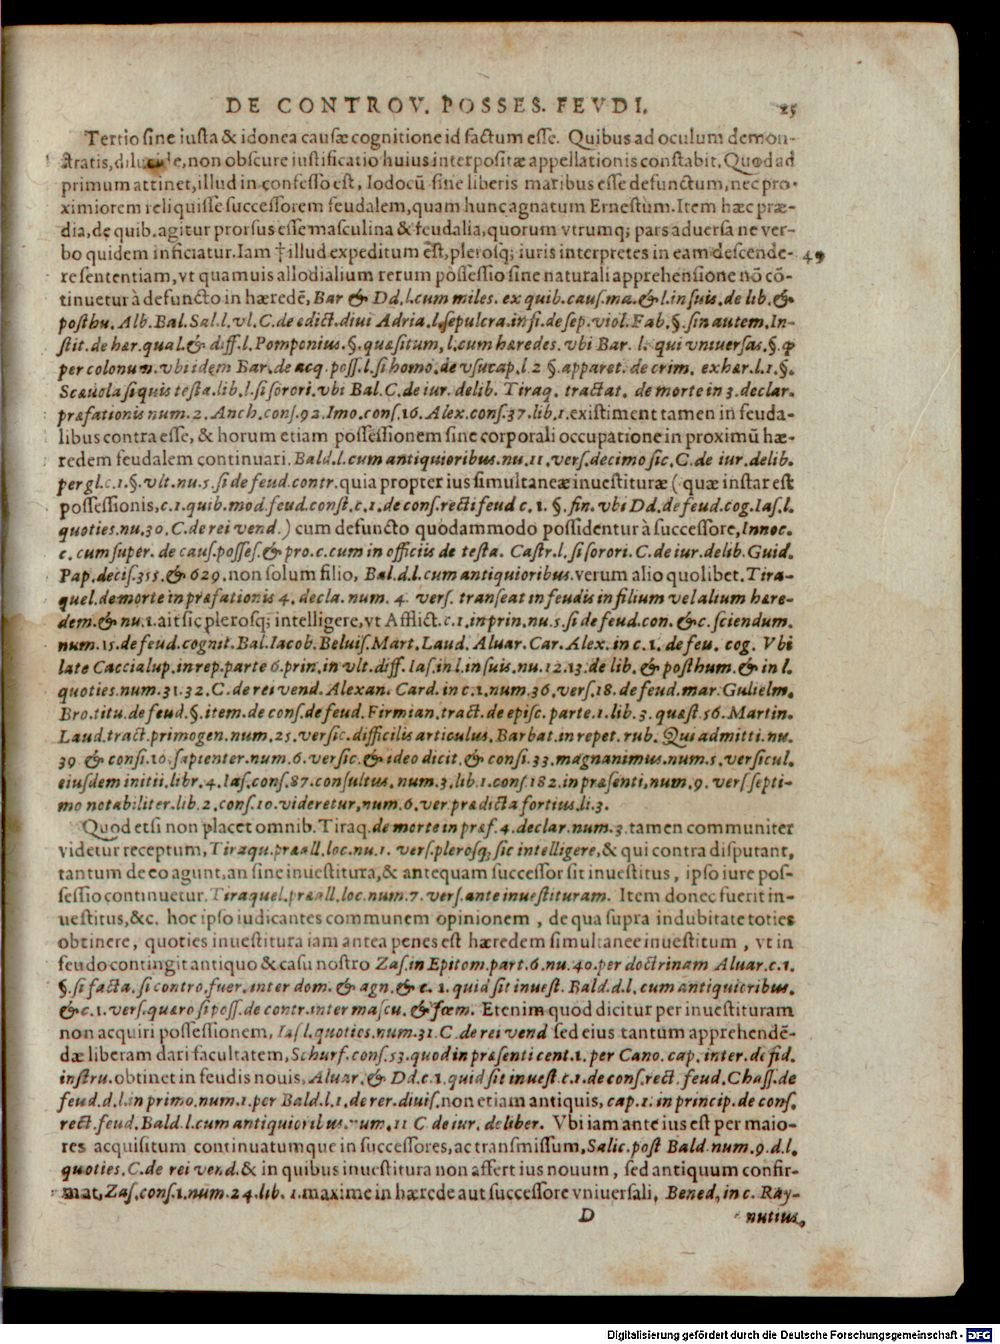 DE CONTROV. POSSES. FEVDI. 25
Tertio sine iusta & idonea causæ cognitione id factum esse. Quibus ad oculum demon-
stratis, dilucide, non obscure iustificatio huius interpositæ appellationis constabit. Quod ad
primum attinet, illud in confesso est, Iodocū sine liberis maribus esse defunctum, nec pro-
ximiorem reliquisse successorem feudalem, quam hunc agnatum Ernestum. Item hæc præ-
dia, de quib. agitur prorsus esse masculina & feudalia, quorum vtrumq; pars aduersa ne ver-
bo quidem inficiatur. Iam † illud expeditum est, plerosq; iuris interpretes in eam descende- 49
re sententiam, vt quamuis allodialium rerum possessio sine naturali apprehensione nō cō-
tinuetur à defuncto in hæredē, Bar & Dd. l. cum miles. ex quib. caus. ma. & l. in suis. de lib. &
posthu. Alb. Bal. Sal. l. vl. C. de edict. diui Adria. l. sepulcra. in fi. de sep. viol. Fab. §. sin autem. In-
stit. de hær. qual. & diff. l. Pomponius. §. quæsitum, l. cum hæredes. vbi Bar. l. qui vniuersas. §. φ
per colonum. vbi idem Bar. de acq. poss. l. si homo. de vsucap. l. 2 §. apparet. de crim. exhær. l. 1. §.
Scæuola si quis testa. lib. l. si sorori. vbi Bal. C. de iur. delib. Tiraq. tractat. de morte in 3. declar.
præfationis num. 2. Anch. cons. 92. Imo. cons. 16. Alex. cons. 37. lib. 1. existiment tamen in feuda-
libus contra esse, & horum etiam possessionem sine corporali occupatione in proximū hæ-
redem feudalem continuari. Bald. l. cum antiquioribus. nu. 11. vers. decimo sic. C. de iur. delib.
per gl. c. 1. §. vlt. nu. 5. si de feud. contr. quia propter ius simultaneæ inuestituræ ( quæ instar est
possessionis, c. 1. quib. mod. feud. const. c. 1. de cons. recti feud c. 1. §. fin. vbi Dd. de feud. cog. Ias. l.
quoties. nu. 30. C. de rei vend. ) cum defuncto quodammodo possidentur à successore, Innoc.
c. cum super. de caus. posses. & pro. c. cum in officiis de testa. Castr. l. si sorori. C. de iur. delib. Guid.
Pap. decis. 355. & 629. non solum filio, Bal. d. l. cum antiquioribus. verum alio quolibet. Tira-
quel. de morte in præfationis 4. decla. num. 4. vers. transeat in feudis in filium vel alium hære-
dem. & nu. 1. ait sic plerosq; intelligere, vt Afflict. c. 1. in prin. nu. 5. si de feud. con. & c. sciendum.
num. 15. de feud. cognit. Bal. Iacob. Beluis. Mart. Laud. Aluar. Car. Alex. in c. 1. de feu. cog. Vbi
late Caccialup. in rep. parte 6. prin. in vlt. diff. Ias. in l. in suis. nu. 12. 13. de lib. & posthum. & in l.
quoties. num. 31. 32. C. de rei vend. Alexan. Card. in c. 1. num. 36. vers. 18. de feud. mar. Gulielm.
Bro. titu. de feud. §. item. de cons. de feud. Firmian. tract. de episc. parte. 1. lib. 3. quæst. 56. Martin.
Laud. tract. primogen. num. 25. versic. difficilis articulus. Barbat. in repet. rub. Qui admitti. nu.
39 & consi. 10. sapienter. num. 6. versic. & ideo dicit. & consi. 33. magnanimus. num. 5. versicul.
eiusdem initii. libr. 4. Ias. cons. 87. consultus. num. 3. lib. 1. cons. 182. in præsenti, num. 9. vers. septi-
mo notabiliter. lib. 2. cons. 10. videretur, num. 6. ver. prædicta fortius. li. 3.
Quod etsi non placet omnib. Tiraq. de morte in præf. 4. declar. num. 3. tamen communiter
videtur receptum, Tiraqu. præall. loc. nu. 1. vers. plerosq; sic intelligere, & qui contra disputant,
tantum de eo agunt, an sine inuestitura, & antequam successor sit inuestitus, ipso iure pos-
sessio continuetur. Tiraquel. præall. loc. num. 7. vers. ante inuestituram. Item donec fuerit in-
uestitus, &c. hoc ipso iudicantes communem opinionem, de qua supra indubitate toties
obtinere, quoties inuestitura iam antea penes est hæredem simultanee inuestitum, vt in
feudo contingit antiquo & casu nostro Zas. in Epitom. part. 6. nu. 40. per doctrinam Aluar. c. 1.
§. si facta. si contro. fuer. inter dom. & agn. & c. 1. quid sit inuest. Bald. d. l. cum antiquioribus.
& c. 1. vers. quæro si poss. de contr. inter mascu. & fœm. Etenim quod dicitur per inuestituram
non acquiri possessionem, Ias l. quoties. num. 31. C. de rei vend sed eius tantum apprehendē-
dæ liberam dari facultatem, Schurf. cons. 53. quod in præsenti cent. 1. per Cano. cap. inter. de fid.
instru. obtinet in feudis nouis, Aluar. & Dd. c. 1. quid sit inuest. c. 1. de cons. rect. feud. Chass. de
feud. d. l. in primo. num. 1. per Bald. l. 1. de rer. diuis. non etiam antiquis, cap. 1. in princip. de cons.
rect. feud. Bald. l. cum antiquioribus. num. 11 C. de iur. deliber. Vbi iam ante ius est per maio-
res acquisitum continuatumque in successores, ac transmissum, Salic. post Bald. num. 9. d. l.
quoties. C. de rei vend. & in quibus inuestitura non affert ius nouum, sed antiquum confir-
mat, Zas. cons. 1. num. 24. lib. 1. maxime in hærede aut successore vniuersali, Bened. in c. Ray-
D nutius,
Digitalisierung gefördert durch die Deutsche Forschungsgemeinschaft - DFG